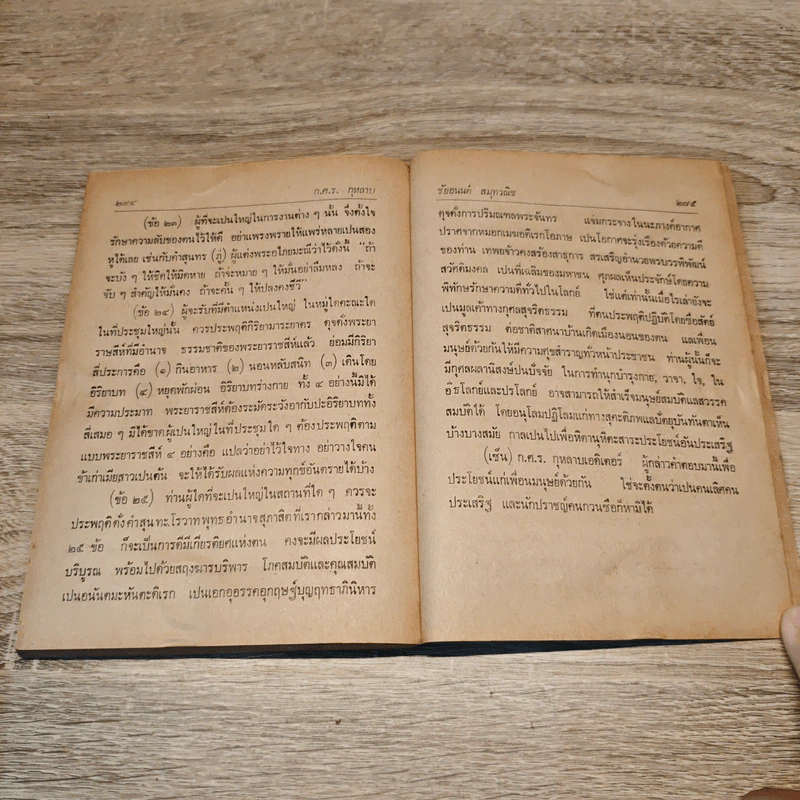 ๒๗๔ ก.ศ.ร. กุหลาบ
(ข้อ ๒๓) ผู้ที่จะเปนใหญ่ในการงานต่าง ๆ นั้น จึงตั้งใจ
รักษาความลับของคนไว้ให้ดี อย่าแพรงพรายให้แพร่หลายเปนสอง
หูได้เลย เช่นกับคำสุนทร (ภู่) ผู้แต่งพระอไภยมะณีว่าไว้ดั่งนี้ "ถ้า
จะบัง ๆ ให้ชิดให้มิดหาย ถ้าจะหมาย ๆ ให้มั่นอย่าลืมหลง ถ้าจะ
จับ ๆ สำคัญให้มั่นคง ถ้าจะอั้น ๆ ให้ปลงคงชีวี"
(ข้อ ๒๔) ผู้จะรับที่มีตำแหน่งเปนใหญ่ ในหมู่ใดคะณะใด
ในที่ประชุมใหญ่นั้น ควรประพฤติกิริยามาระยาตร ดุจดั่งพระยา
ราชสีห์ที่มีอำนาจ ธรรมชาติของพระยาราชสีห์แล้ว ย่อมมีกิริยา
สี่ประการคือ (๑) กินอาหาร (๒) นอนหลับสนิท (๓) เดินโดย
อิริยาบท (๔) หยุดพักผ่อน อิริยาบทร่างกาย ทั้ง ๔ อย่างนี้มิได้
มีความประมาท พระยาราชสีห์ต้องระมัดระวังอากัปะอิริยาบททั้ง
สี่เสมอ ๆ มิได้ขาดผู้เปนใหญ่ในที่ประชุมใด ๆ ต้องประพฤติตาม
แบบพระยาราชสีห์ ๔ อย่างคือ แปลว่าอย่าไว้ใจทาง อย่าวางใจคน
ข้าเก่าเมียสาวเปนต้น จะให้ได้รับผลแห่งความทุกข์อันตรายได้บ้าง
(ข้อ ๒๕) ท่านผู้ใดที่จะเปนใหญ่ในสถานที่ใด ๆ ควรจะ
ประพฤติดั่งคำสุนทะโรวาทพุทธอำนาจสุภาสิตที่เรากล่าวมานี้ทั้ง
๒๕ ข้อ ก็จะเป็นการดีมีเกียรติยศแห่งตน คงจะมีผลประโยชน์
บริบูรณ พร้อมไปด้วยสฤงฆารบริพาร โภคสมบัติและคุณสมบัติ
เปนอนันตมะหันตะดิเรก เปนเอกอุอรรคอุกฤษฐ์บุญฤทธาภินิหาร
ชัยอนนต์ สมุทวณิช ๒๗๕
ดุจดั่งการปริมณฑลพระจันทร แจ่มกระจางในนะภางค์อากาศ
ปราศจากหมอกเมฆอดิเรกโอภาษ เปนโอกาศจะรุ่งเรืองด้วยความดี
ของท่าน เทพยจ้าวคงสร้องสาธุการ สรเสริญอำนวยพรบวรพิพัฒน์
สวัศดิมงคล เปนที่เฉลิมของมหาชน ศุภผลเห็นประจักษ์โดยความ
พิทักษ์รักษาความดีทั่วไปในโลกย์ ใช่แต่เท่านั้นเมื่อไรเล่ายังจะ
เปนมูลเค้าทางกุศลสุจริตธรรม ที่ตนประพฤติปฏิบัติโดยซื่อสัตย์
สุจริตธรรม ต่อชาติสาศนาบ้านเกิดเมืองนอนของตน แลเพื่อน
มนุษย์ด้วยกันให้มีความศุขสำราญทั่วหน้าประชาชน ท่านผู้นั้นก็จะ
มีกุศลผลานิสงษ์ปนปัจจัย ในการทำนุกบำรุงกาย, วาจา, ใจ, ใน
อิธโลกย์และปรโลกย์ อาจสามารถให้สำเร็จมนุษย์สมบัติแลสวรรค
สมบัติได้ โดยอนุโลมปฏิโลมแก่ทางสุคะติภพแลบัดยุบันทันตาเห็น
บ้างบางสมัย กาลเปนไปเพื่อหิตานุหิตะสาระประโยชน์อันประเสริฐ
(เซ็น) ก.ศ.ร. กุหลาบเอดิเตอร์ ผู้กล่าวคำตอบมานี้เพื่อ
ประโยชน์แก่เพื่อนมนุษย์ด้วยกัน ใช่จะตั้งตนว่าเปนคนเลิศคน
ประเสริฐ และนักปราชญ์คนกวนซือก็หามิได้